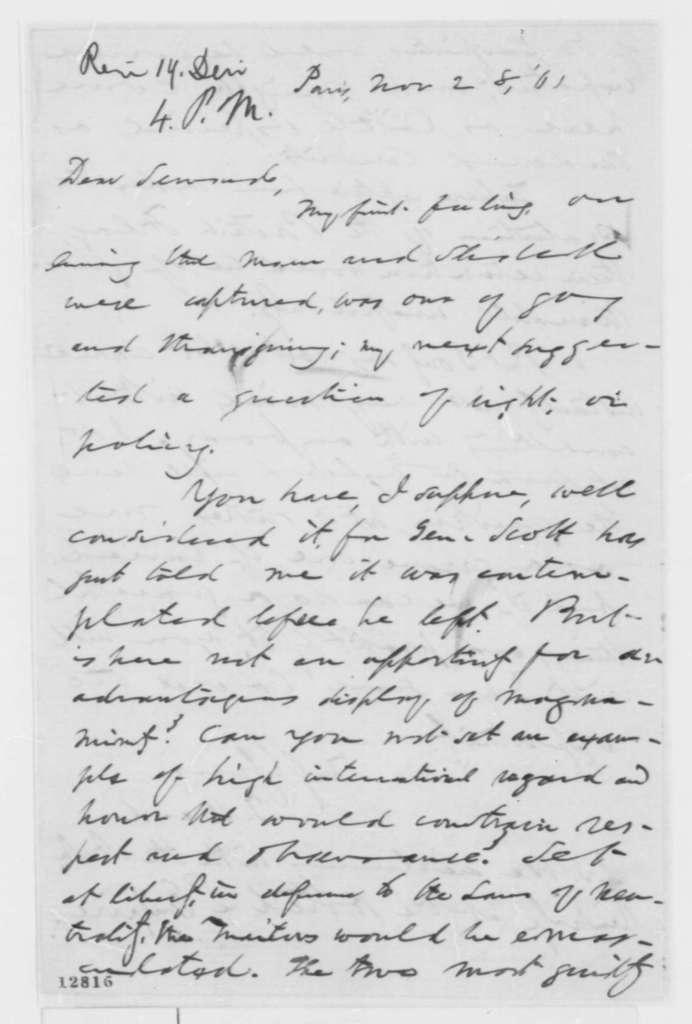 Rec'd 14. Dec.
4. P. M.
Paris, Nov 28, '61
Dear Seward,
My first feeling, on
learning that Mason and Slidell
were captured, was one of joy
and thanksgiving; my next sugges-
ted a question of right, or
policy.
You have, I suppose, well
considered it, for Gen. Scott has
just told me it was contem-
plated before he left. But
is here not an opportunity for an
advantageous display of magna-
nimity? Can you not set an exam-
ple of high international regard and
honor that would constrain res-
pect and observance? Set
at liberty, in deference to the Laws of Neu-
trality, the Traitors would be emas-
culated. The two most guilty
12816